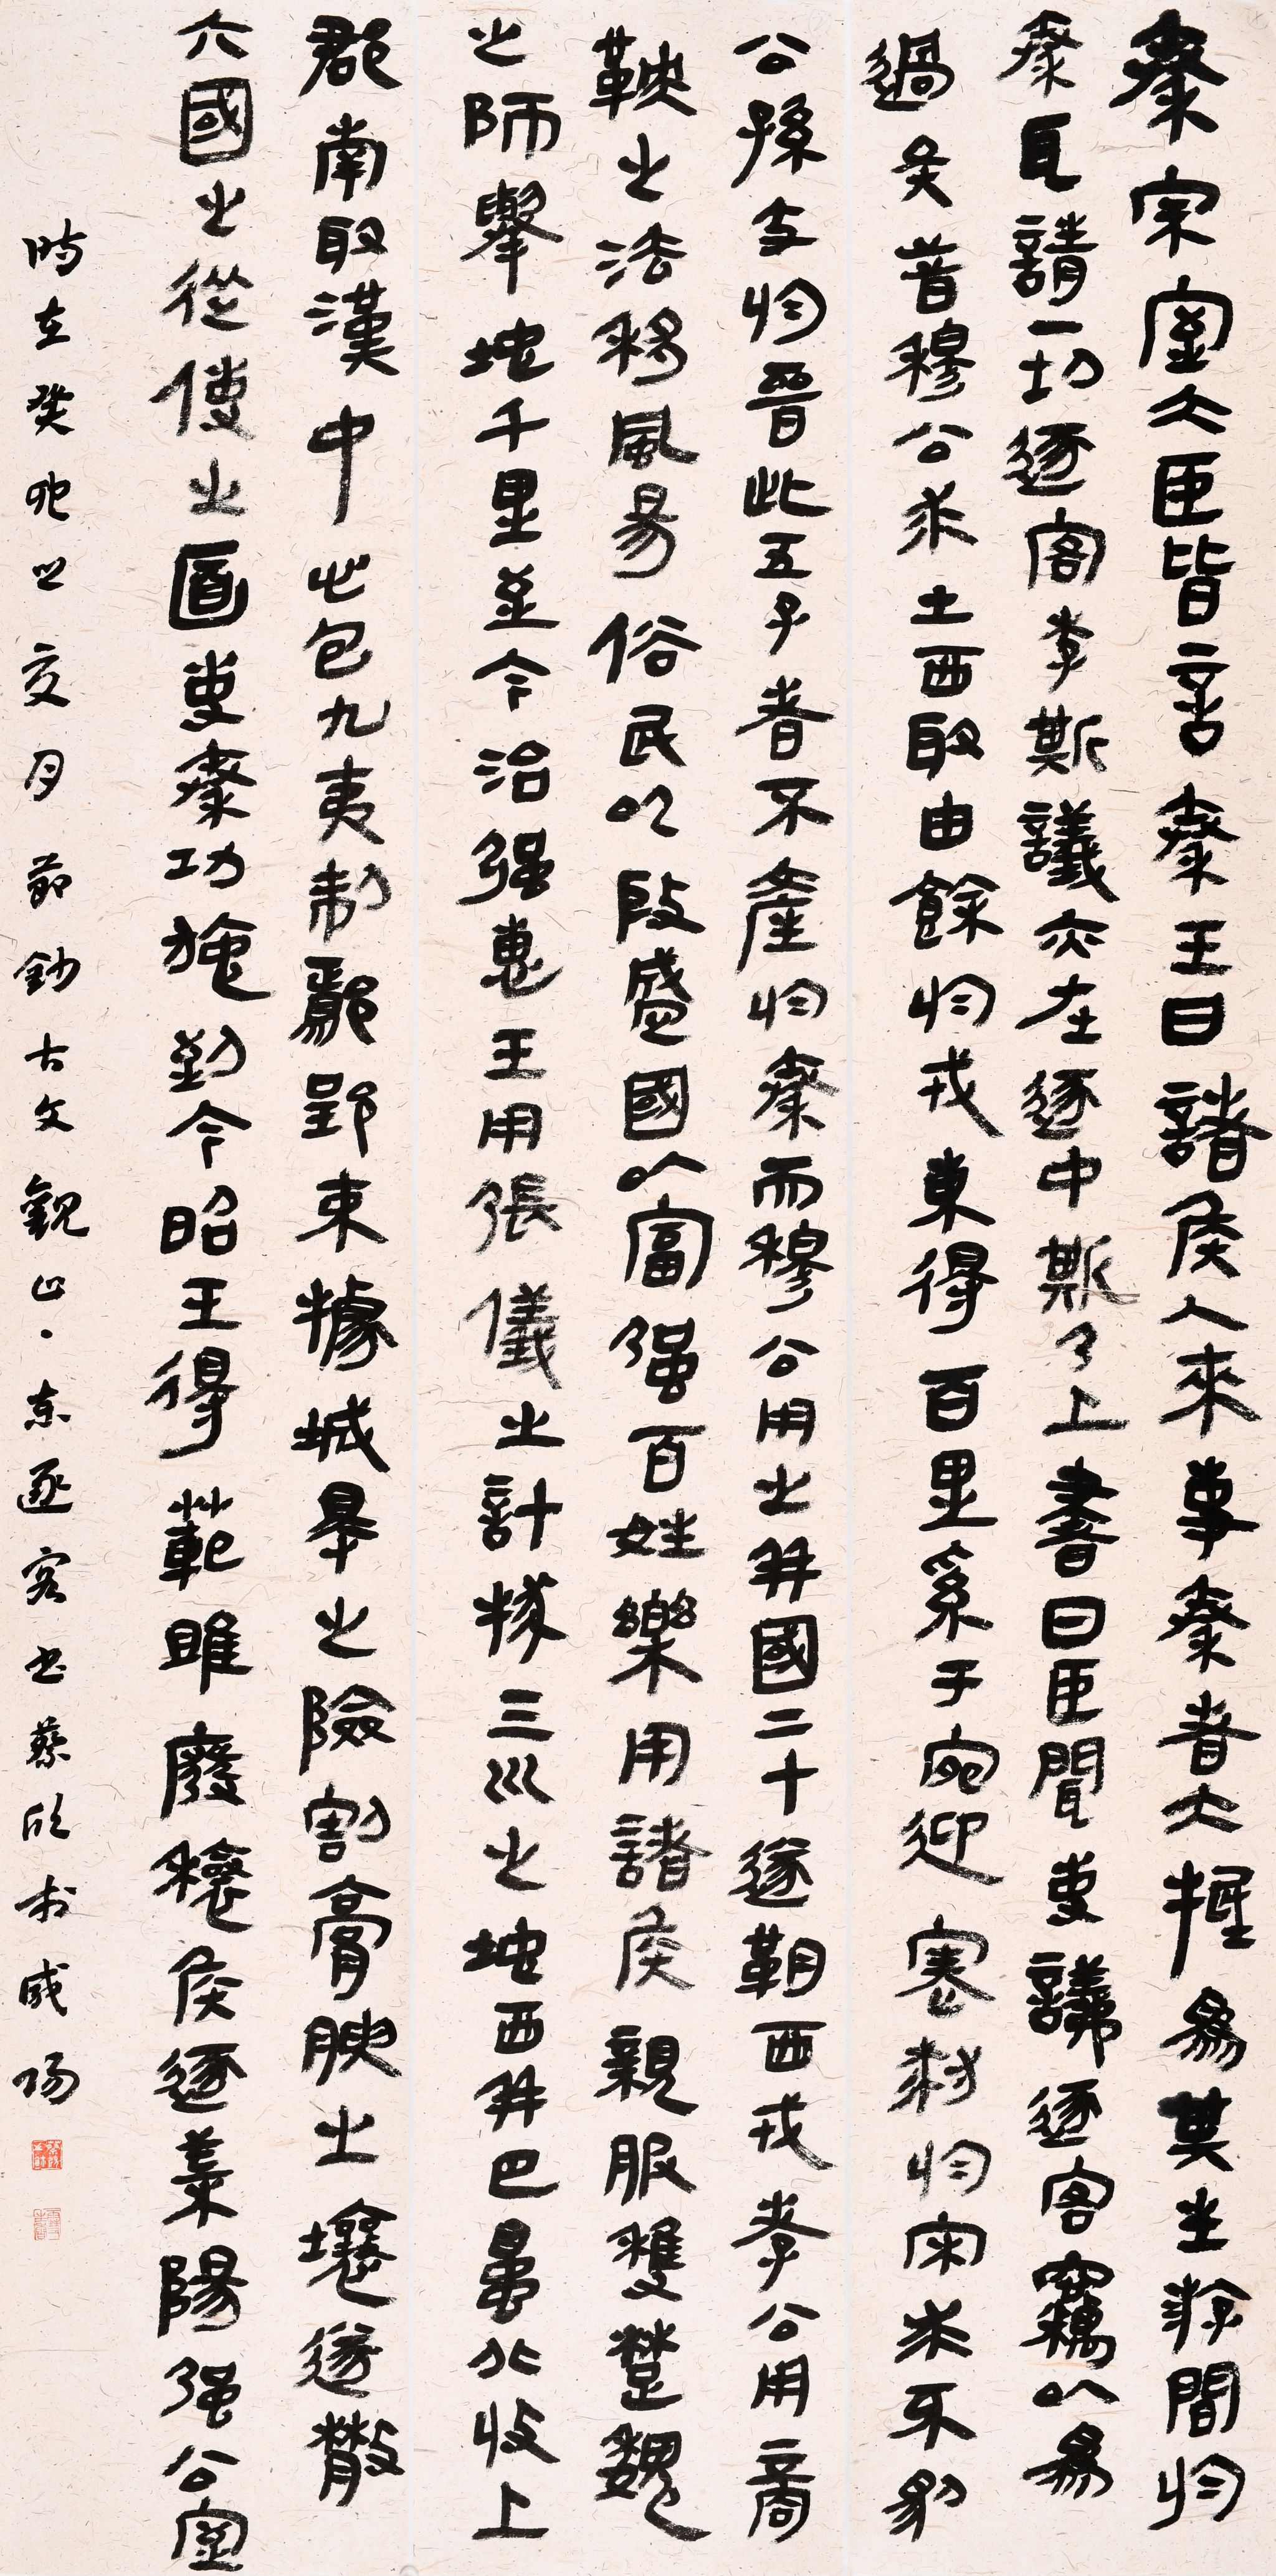 秦宗室大臣皆言秦王曰諸侯人來事秦者大抵爲其主游間於
秦耳請一切逐客李斯議亦在逐中斯乃上書曰臣聞吏議逐客竊以爲
過矣昔穆公求士西取由餘於戎東得百里奚于宛迎蹇叔於宋求丕豹
公孫支於晉此五子者不產於秦而穆公用之并國二十遂霸西戎孝公用商
鞅之法移風易俗民以殷盛國以富强百姓樂用諸侯親服獲楚魏
之師舉地千里至今治强惠王用張儀之計拔三川之地西并巴蜀北收上
郡南取漢中包九夷制鄢郢東據城皋之險割膏腴之壤遂散
六國之從使之面事秦功施到今昭王得範雎廢穰侯逐華陽强公室
時在癸卯之夏月節鈔古文觀止諫逐客書蔡欣於咸陽